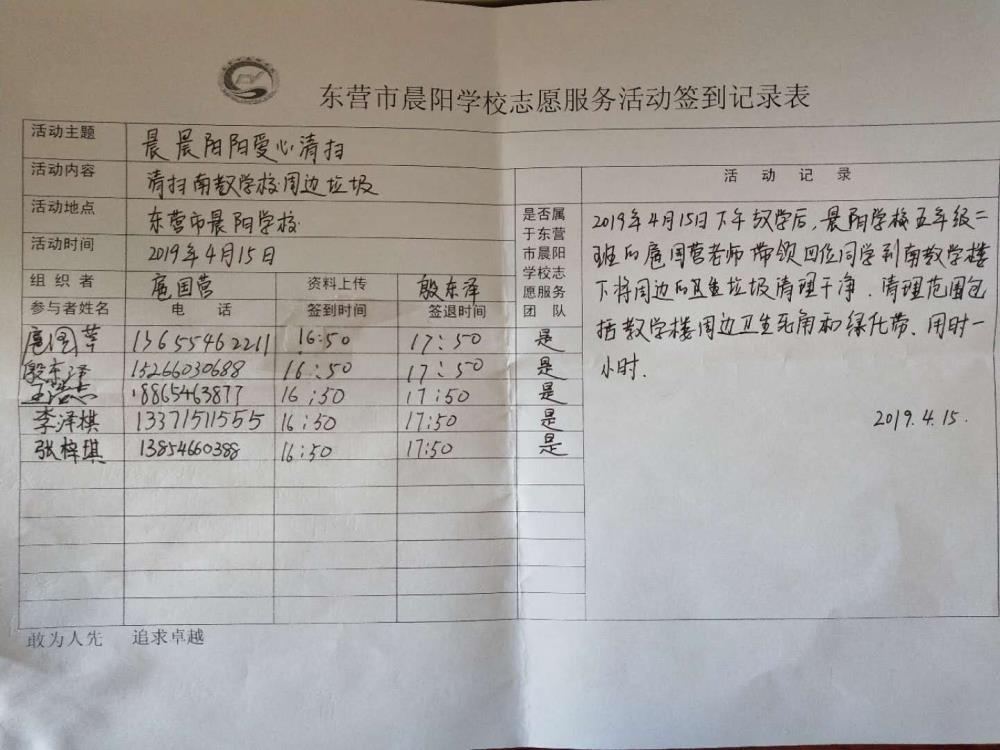 东营市晨阳学校志愿服务活动签到记录表
活动主题 晨晨阳阳爱心清扫
活动内容 清扫南教学校周边垃圾
活动地点 东营市晨阳学校
活动时间 2019年4月15日
组织者 扈国营 资料上传 殷东泽
参与者姓名 电话 签到时间 签退时间 是否属于东营市晨阳学校志愿服务团队
扈国营 13655462211 16:50 17:50 是
殷东泽 15266030688 16:50 17:50 是
18865463877 16:50 17:50 是
李泽棋 13371511555 16:50 17:50 是
张梓琪 13854660388 16:50 17:50 是
活动记录
2019年4月15日下午放学后,晨阳学校五年级二
班的扈国营老师带领四位同学到南教学楼
下将周边的卫生垃圾清理干净.清理范围包
括教学楼周边卫生死角和绿化带.用时一
小时.
2019.4.15.
敢为人先 追求卓越